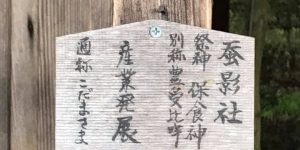 蚕影社
祭神 保食神
別称豊受比咩
産業発展
通称こだまさま